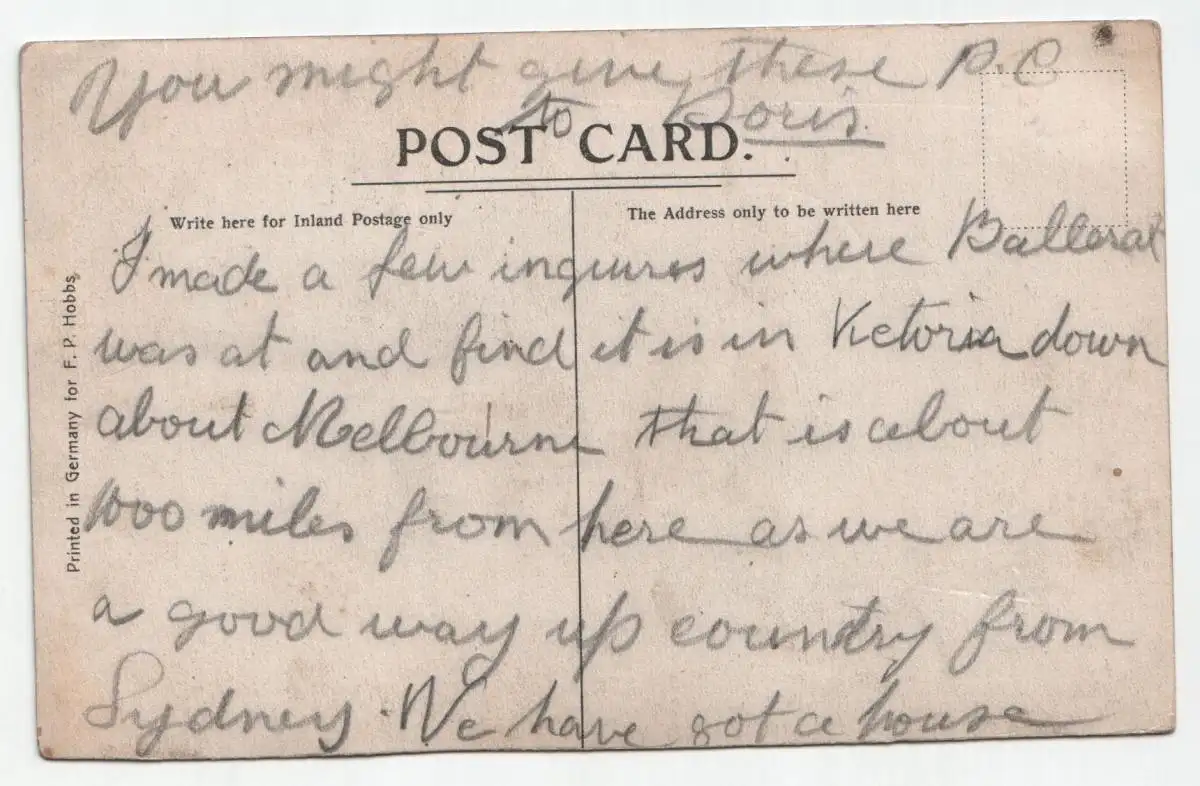 You might give these P.C
to Doris.
POST CARD.
Write here for Inland Postage only
The Address only to be written here
I made a few inquires where Ballarat
was at and find it is in Victoria down
about Melbourne that is about
1000 miles from here as we are
a good way up country from
Sydney. We have got a house
Printed in Germany for F. P. Hobbs,